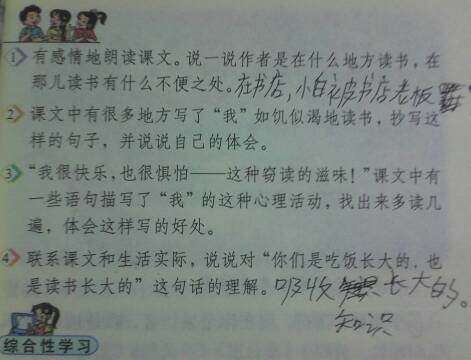 1 有感情地朗读课文。说一说作者是在什么地方读书，在
那儿读书有什么不便之处。在书店，小白被书店老板
2 课文中有很多地方写了“我”如饥似渴地读书，抄写这
样的句子，并说说自己的体会。
3 “我很快乐，也很惧怕——这种窃读的滋味！”课文中有
一些语句描写了“我”的这种心理活动，找出来多读几
遍，体会这样写的好处。
4 联系课文和生活实际，说说对“你们是吃饭长大的，也
是读书长大的”这句话的理解。吸收 长大的。
知识
综合性学习